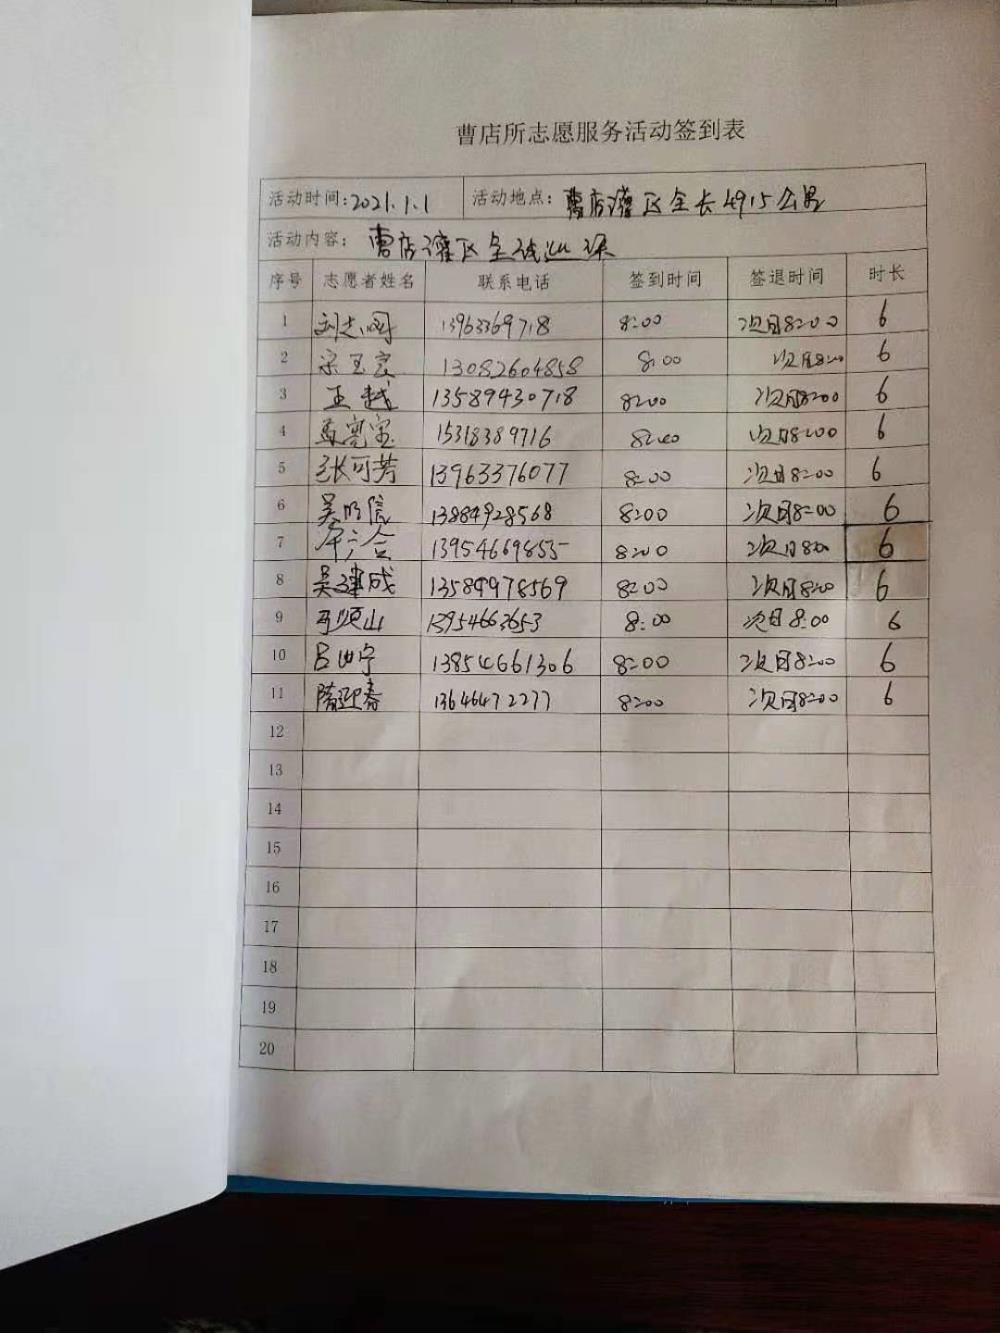 曹店所志愿服务活动签到表
活动时间:2021.1.1 活动地点: 曹店灌区全长4915公里
活动内容: 曹店灌区全线巡
序号 志愿者姓名 联系电话 签到时间 签退时间 时长
1 刘志 13963369718 8:00 次日8:00 6
2 宋玉 13082604858 8:00 次日8:00 6
3 王越 13589430718 8:00 次日8:00 6
4 宝 15318389716 8:00 次日8:00 6
5 张可芳 13963376077 8:00 次日8:00 6
6 吴明信 13884928568 8:00 次日8:00 6
7 13954669855 8:00 次日8:00 6
8 吴建成 13589978569 8:00 次日8:00 6
9 山 13954663653 8:00 次日8:00 6
10 吕 宁 13854661306 8:00 次日8:00 6
11 隋迎春 13646472277 8:00 次日8:00 6
12
13
14
15
16
17
18
19
20